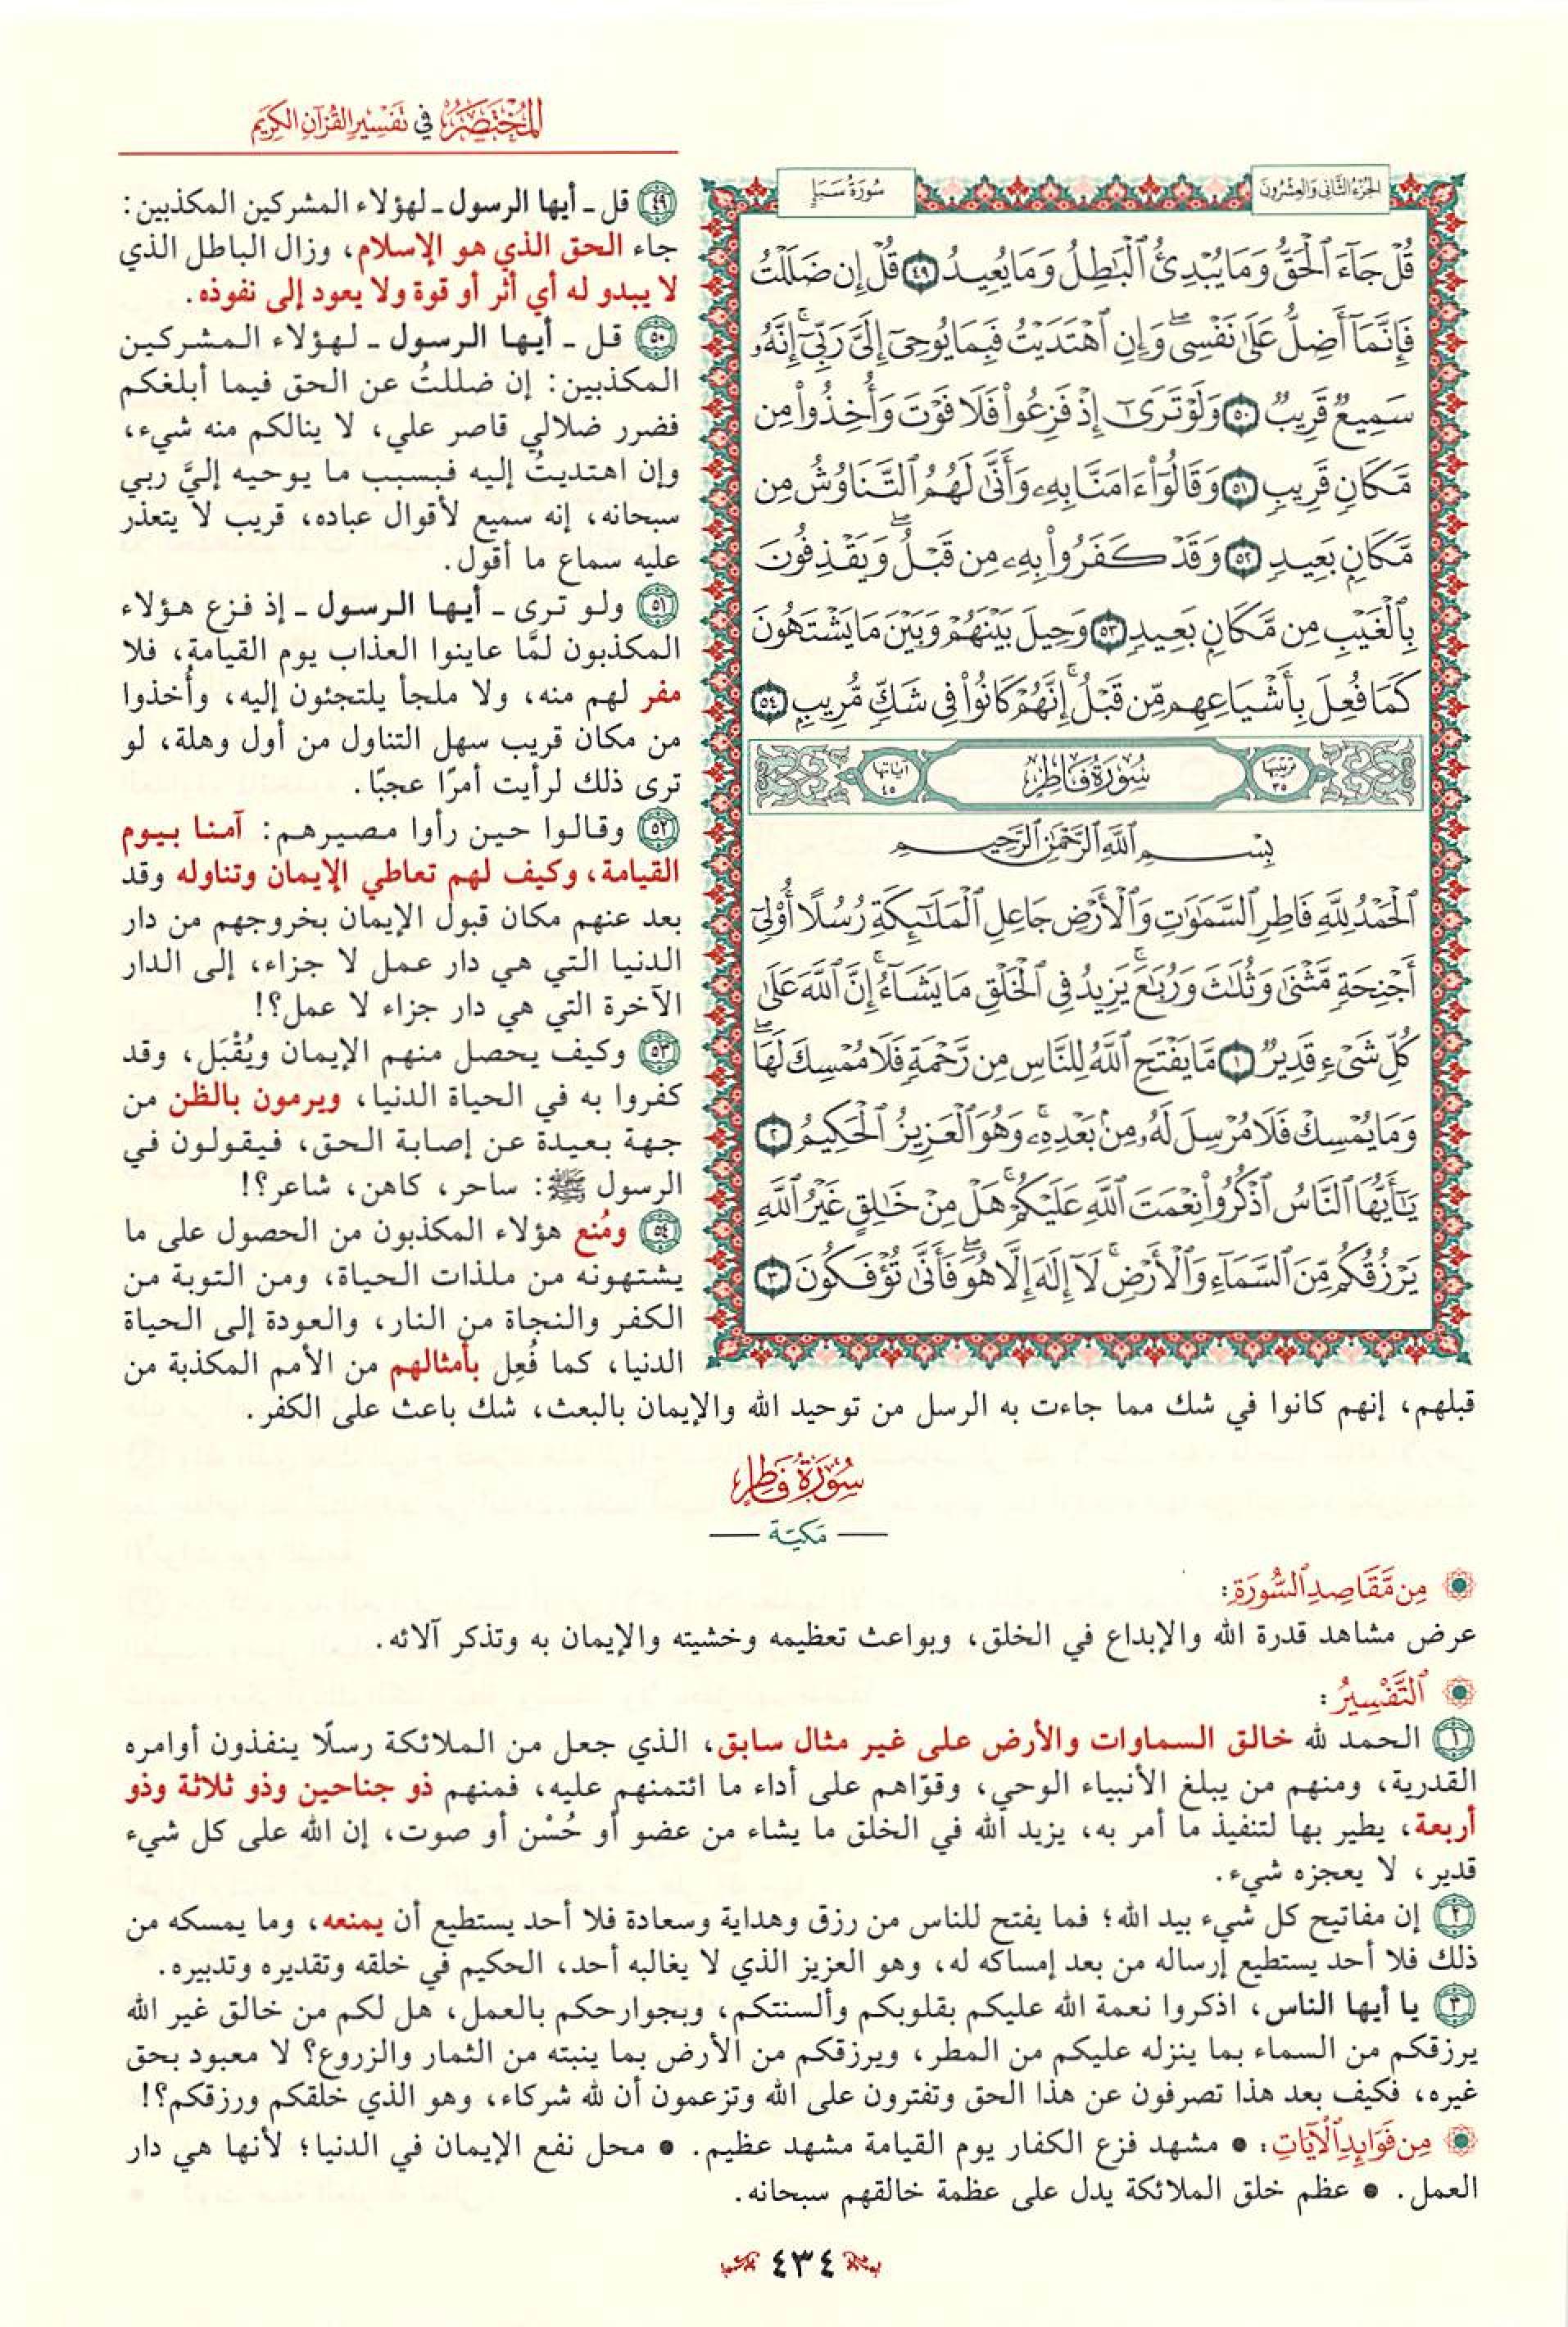 المختصر في تفسير القرآن الكريم
الجزء الثاني والعشرون
سورة سبإ
قُلْ جَآءَ ٱلْحَقُّ وَمَا يُبْدِئُ ٱلْبَٰطِلُ وَمَا يُعِيدُ ٤٩ قُلْ إِن ضَلَلْتُ
فَإِنَّمَآ أَضِلُّ عَلَىٰ نَفْسِىۖ وَإِنِ ٱهْتَدَيْتُ فَبِمَا يُوحِىٓ إِلَىَّ رَبِّىٓۚ إِنَّهُۥ
سَمِيعٌ قَرِيبٌ ٥٠ وَلَوْ تَرَىٰٓ إِذْ فَزِعُوا۟ فَلَا فَوْتَ وَأُخِذُوا۟ مِن
مَّكَانٍ قَرِيبٍ ٥١ وَقَالُوٓا۟ ءَامَنَّا بِهِۦ وَأَنَّىٰ لَهُمُ ٱلتَّنَاوُشُ مِن
مَّكَانٍۭ بَعِيدٍ ٥٢ وَقَدْ كَفَرُوا۟ بِهِۦ مِن قَبْلُۖ وَيَقْذِفُونَ
بِٱلْغَيْبِ مِن مَّكَانٍۭ بَعِيدٍ ٥٣ وَحِيلَ بَيْنَهُمْ وَبَيْنَ مَا يَشْتَهُونَ
كَمَا فُعِلَ بِأَشْيَاعِهِم مِّن قَبْلُۚ إِنَّهُمْ كَانُوا۟ فِى شَكٍّ مُّرِيبٍۭ ٥٤
ترتيبها ٣٥ سورة فاطر آياتها ٤٥
بِسْمِ ٱللَّهِ ٱلرَّحْمَٰنِ ٱلرَّحِيمِ
ٱلْحَمْدُ لِلَّهِ فَاطِرِ ٱلسَّمَٰوَٰتِ وَٱلْأَرْضِ جَاعِلِ ٱلْمَلَٰٓئِكَةِ رُسُلًا أُو۟لِىٓ
أَجْنِحَةٍ مَّثْنَىٰ وَثُلَٰثَ وَرُبَٰعَۚ يَزِيدُ فِى ٱلْخَلْقِ مَا يَشَآءُۚ إِنَّ ٱللَّهَ عَلَىٰ
كُلِّ شَىْءٍ قَدِيرٌ ١ مَّا يَفْتَحِ ٱللَّهُ لِلنَّاسِ مِن رَّحْمَةٍ فَلَا مُمْسِكَ لَهَاۖ
وَمَا يُمْسِكْ فَلَا مُرْسِلَ لَهُۥ مِنۢ بَعْدِهِۦۚ وَهُوَ ٱلْعَزِيزُ ٱلْحَكِيمُ ٢
يَٰٓأَيُّهَا ٱلنَّاسُ ٱذْكُرُوا۟ نِعْمَتَ ٱللَّهِ عَلَيْكُمْۚ هَلْ مِنْ خَٰلِقٍ غَيْرُ ٱللَّهِ
يَرْزُقُكُم مِّنَ ٱلسَّمَآءِ وَٱلْأَرْضِۚ لَآ إِلَٰهَ إِلَّا هُوَۖ فَأَنَّىٰ تُؤْفَكُونَ ٣
٤٩ قل ـ أيها الرسول ـ لهؤلاء المشركين المكذبين:
جاء الحق الذي هو الإسلام، وزال الباطل الذي
لا يبدو له أي أثر أو قوة ولا يعود إلى نفوذه.
٥٠ قل ـ أيها الرسول ـ لهؤلاء المشركين
المكذبين: إن ضللتُ عن الحق فيما أبلغكم
فضرر ضلالي قاصر علي، لا ينالكم منه شيء،
وإن اهتديتُ إليه فبسبب ما يوحيه إليَّ ربي
سبحانه، إنه سميع لأقوال عباده، قريب لا يتعذر
عليه سماع ما أقول.
٥١ ولو ترى ـ أيها الرسول ـ إذ فزع هؤلاء
المكذبون لمَّا عاينوا العذاب يوم القيامة، فلا
مفر لهم منه، ولا ملجأ يلتجئون إليه، وأُخذوا
من مكان قريب سهل التناول من أول وهلة، لو
ترى ذلك لرأيت أمرًا عجبًا.
٥٢ وقالوا حين رأوا مصيرهم: آمنا بيوم
القيامة، وكيف لهم تعاطي الإيمان وتناوله وقد
بعد عنهم مكان قبول الإيمان بخروجهم من دار
الدنيا التي هي دار عمل لا جزاء، إلى الدار
الآخرة التي هي دار جزاء لا عمل؟!
٥٣ وكيف يحصل منهم الإيمان ويُقْبَل، وقد
كفروا به في الحياة الدنيا، ويرمون بالظن من
جهة بعيدة عن إصابة الحق، فيقولون في
الرسول ﷺ: ساحر، كاهن، شاعر؟!
٥٤ ومُنع هؤلاء المكذبون من الحصول على ما
يشتهونه من ملذات الحياة، ومن التوبة من
الكفر والنجاة من النار، والعودة إلى الحياة
الدنيا، كما فُعِل بأمثالهم من الأمم المكذبة من
قبلهم، إنهم كانوا في شك مما جاءت به الرسل من توحيد الله والإيمان بالبعث، شك باعث على الكفر.
سُورَةُ فَاطِرٍ
— مَكيّة —
مِن مَّقَاصِدِ ٱلسُّورَةِ:
عرض مشاهد قدرة الله والإبداع في الخلق، وبواعث تعظيمه وخشيته والإيمان به وتذكر آلائه.
ٱلتَّفْسِيرُ:
١ الحمد لله خالق السماوات والأرض على غير مثال سابق، الذي جعل من الملائكة رسلًا ينفذون أوامره
القدرية، ومنهم من يبلغ الأنبياء الوحي، وقوّاهم على أداء ما ائتمنهم عليه، فمنهم ذو جناحين وذو ثلاثة وذو
أربعة، يطير بها لتنفيذ ما أمر به، يزيد الله في الخلق ما يشاء من عضو أو حُسْن أو صوت، إن الله على كل شيء
قدير، لا يعجزه شيء.
٢ إن مفاتيح كل شيء بيد الله؛ فما يفتح للناس من رزق وهداية وسعادة فلا أحد يستطيع أن يمنعه، وما يمسكه من
ذلك فلا أحد يستطيع إرساله من بعد إمساكه له، وهو العزيز الذي لا يغالبه أحد، الحكيم في خلقه وتقديره وتدبيره.
٣ يا أيها الناس، اذكروا نعمة الله عليكم بقلوبكم وألسنتكم، وبجوارحكم بالعمل، هل لكم من خالق غير الله
يرزقكم من السماء بما ينزله عليكم من المطر، ويرزقكم من الأرض بما ينبته من الثمار والزروع؟ لا معبود بحق
غيره، فكيف بعد هذا تصرفون عن هذا الحق وتفترون على الله وتزعمون أن لله شركاء، وهو الذي خلقكم ورزقكم؟!
مِن فَوَائِدِ ٱلْآيَاتِ: • مشهد فزع الكفار يوم القيامة مشهد عظيم. • محل نفع الإيمان في الدنيا؛ لأنها هي دار
العمل. • عظم خلق الملائكة يدل على عظمة خالقهم سبحانه.
٤٣٤